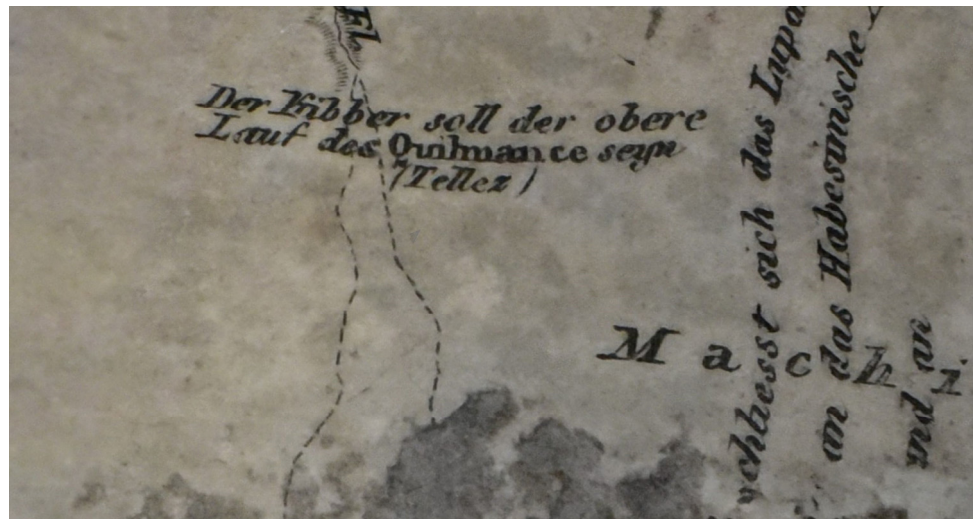 Fl.
Der Kibber soll der obere
Lauf des Quilmance seyn
(Tellez)
Machi
schliesst sich das Lupa
an das Habesinische
und an